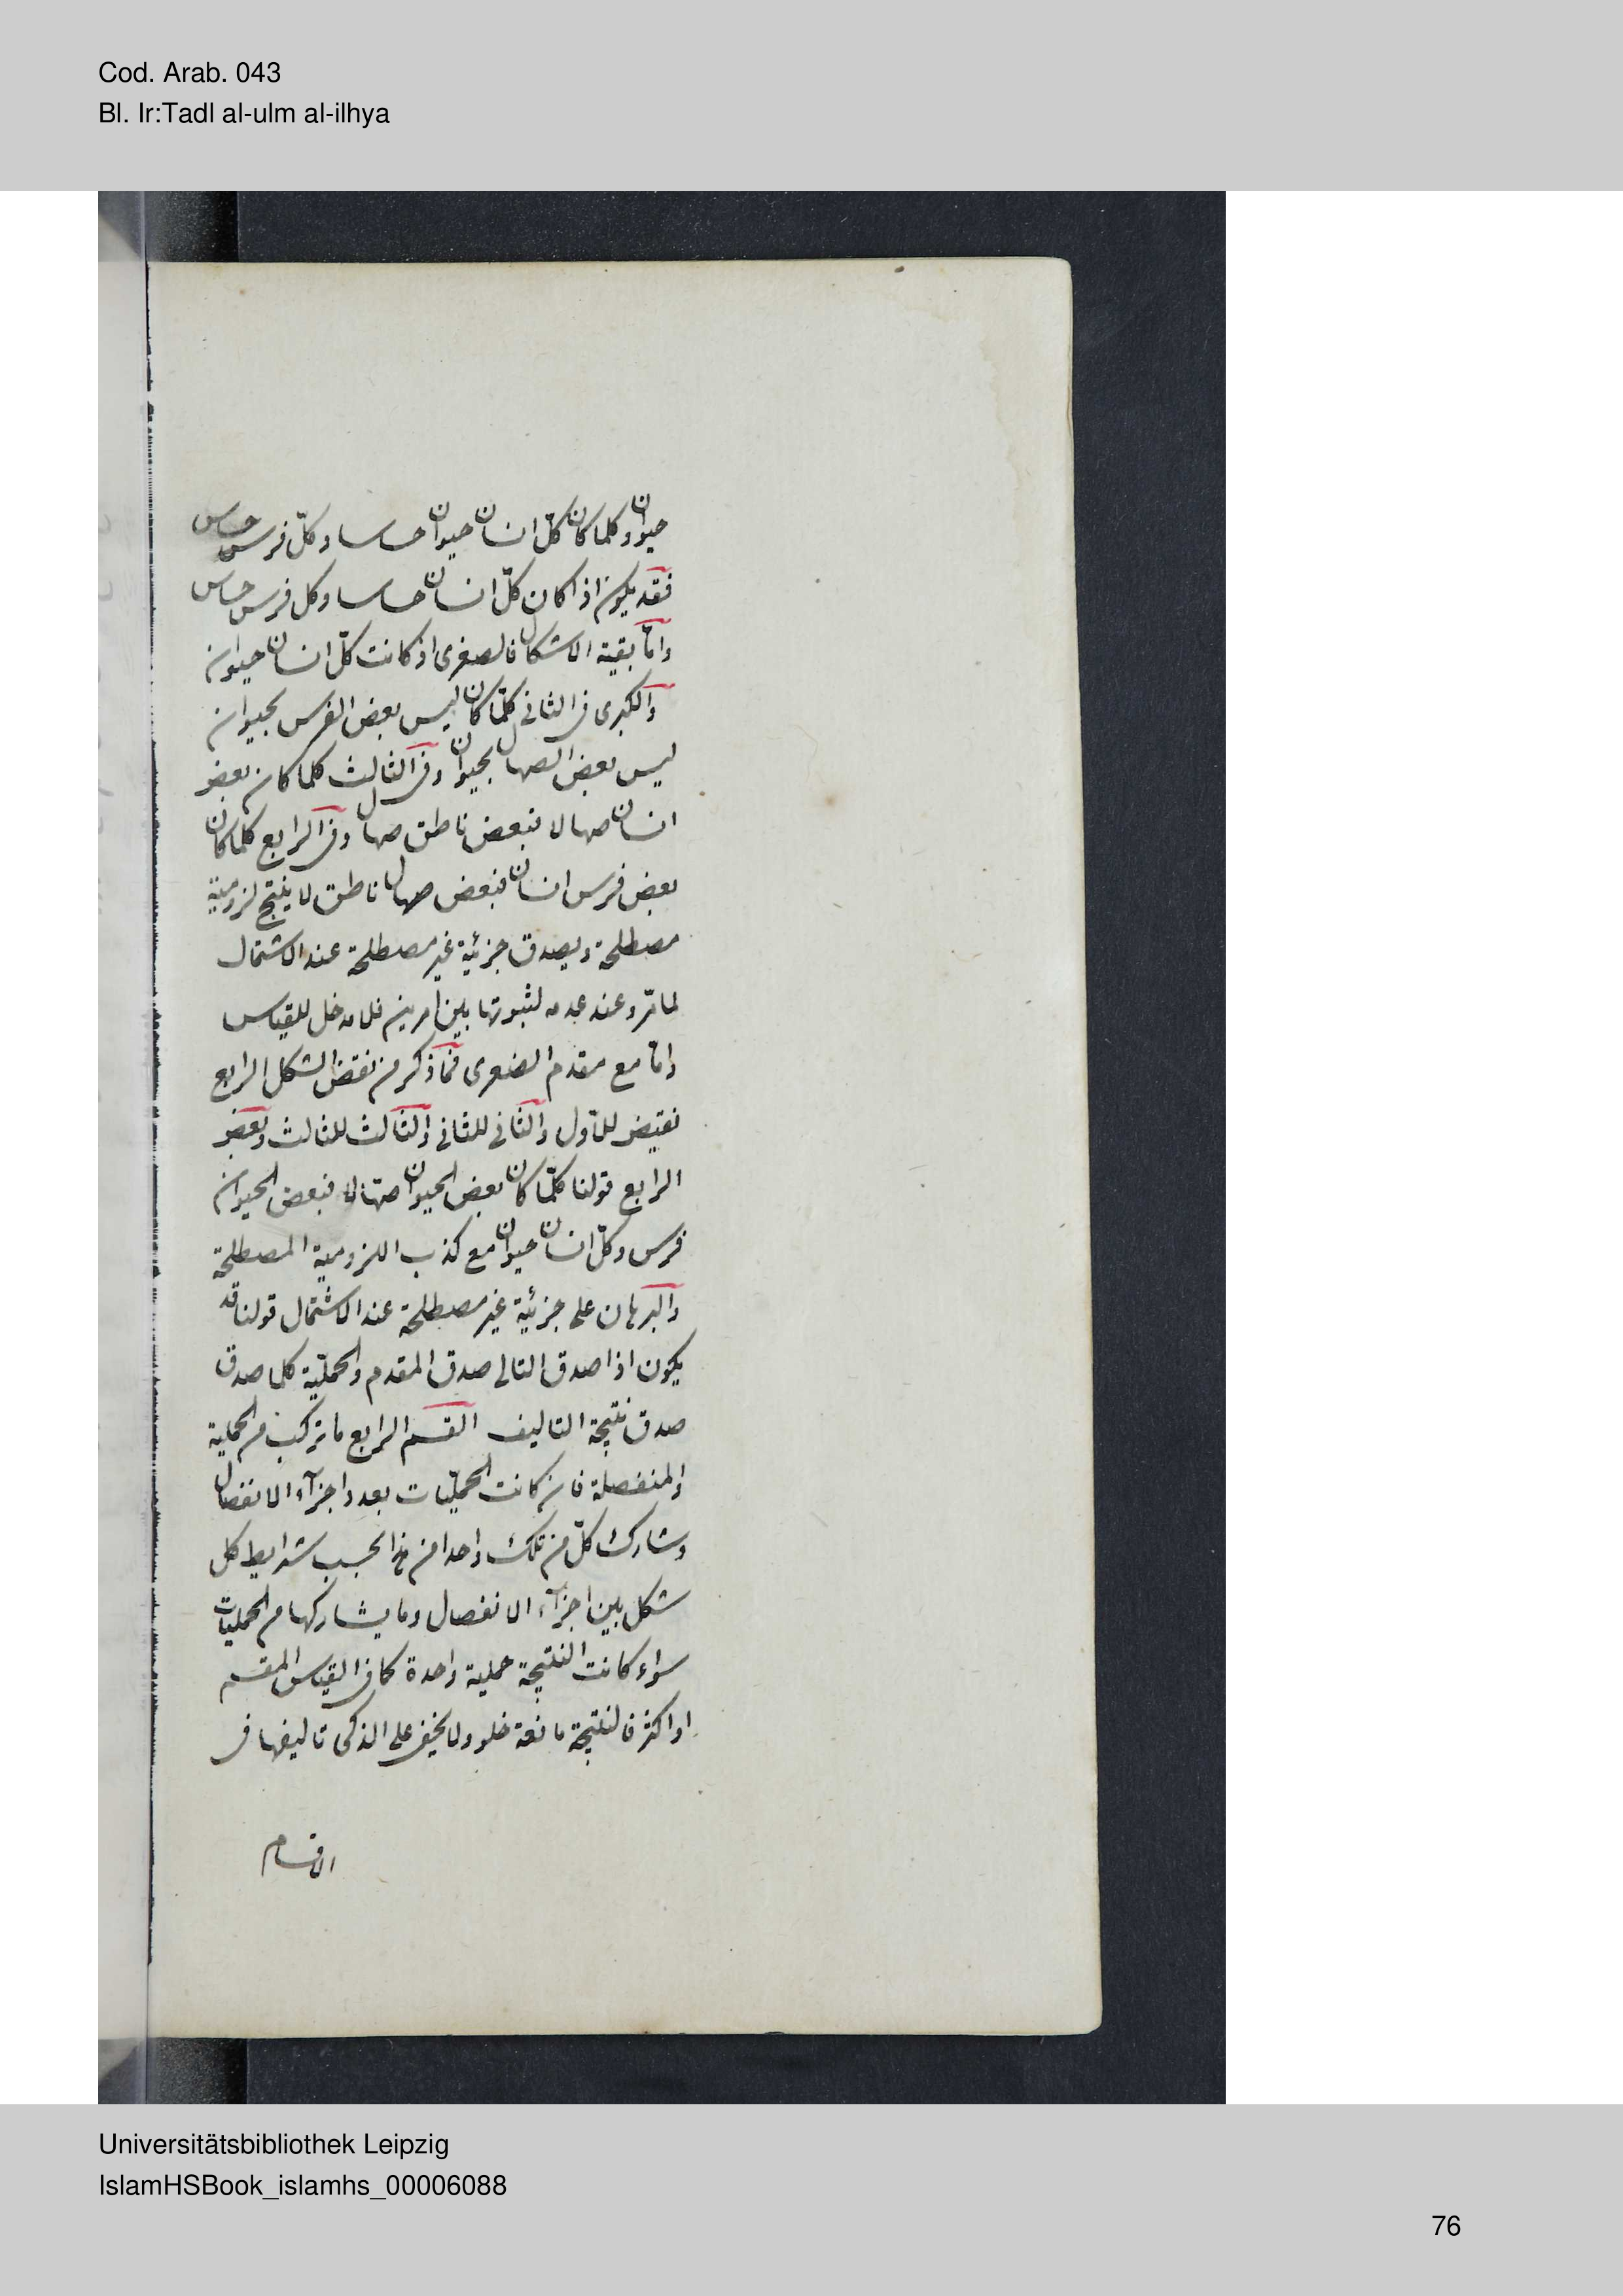 Cod. Arab. 043
Bl. Ir:Tadl al-ulm al-ilhya
حيوان وكلما كان كلّ انسان حيوان حساسا وكلّ فرس حساس
فقد يكون اذا كان كلّ انسان حساسا وكل فرس حساس
وامّا بقية الاشكال فالصغرى اذ كانت كلّ انسان حيوان
والكبرى فى الثانى كلّما كان ليس بعض الفرس بحيوان
ليس بعض الصهال بحيوان وفى الثالث كلما كان بعض
انسان صهالا فبعض ناطق صهال وفى الرابع كلما كان
بعض فرس انسان فبعض صهال ناطق لا ينتج لزومية
مصطلحة ويصدق جزئية غير مصطلحة عند الاشتمال
لما مرّ وعند عدمه لثبوتها بين امرين فلا مدخل للقياس
وامّا مع مقدم الصغرى فما ذكر من نقض الشكل الرابع
نقيض للاول والثانى للثانى والثالث للثالث ونقض
الرابع قولنا كلّما كان بعض الحيوان صهّالا فبعض الحيوان
فرس وكلّ انسان حيوان مع كذب اللزومية المصطلحة
والبرهان على جزئية غير مصطلحة عند الاشتمال قولنا قد
يكون اذا صدق التالى صدق المقدم والحمليّة كلما صدق
صدق نتيجة التاليف القسم الرابع ما تركب من الحملية
والمنفصلة فان كانت الحمليّات بعدد اجزآء الانفصال
وشارك كلّ من تلك واحدا من بحسب شرايط كل
شكل بين اجزآء الانفصال وما يشاركها من الحمليات
سواء كانت النتيجة حملية واحدة كما فى القياس المقسم
او اكثر فالنتيجة مانعة خلو ولا يخفى على الذكى تاليفها فى
الاقسام
Universitätsbibliothek Leipzig
IslamHSBook_islamhs_00006088
76